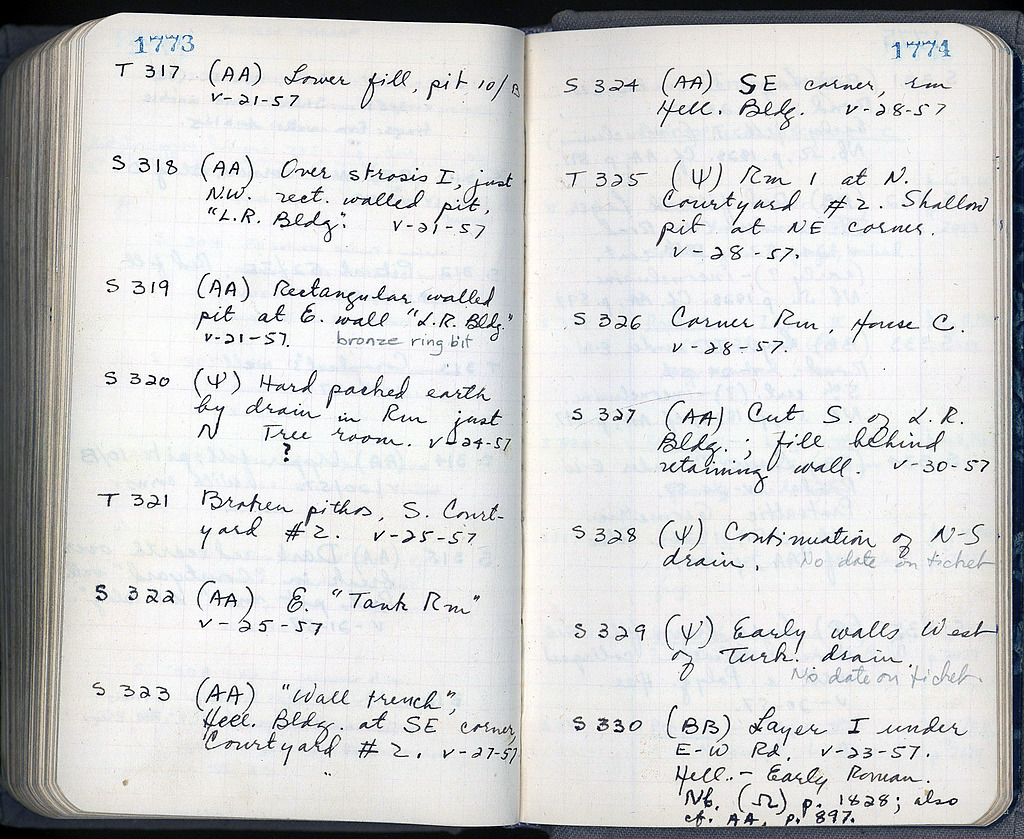 1773
T 317 (AA) Lower fill, pit 10/B
V-21-57
S 318 (AA) Over strosis I, just
N.W. rect. walled pit,
"L.R. Bldg." V-21-57
S 319 (AA) Rectangular walled
pit at E. wall "L.R. Bldg."
V-21-57. bronze ring bit
S 320 (Ψ) Hard packed earth
by drain in Rm just
N Tree room. V-24-57
?
T 321 Broken pithos, S. Court-
yard #2. V-25-57
S 322 (AA) E. "Tank Rm"
V-25-57
S 323 (AA) "Wall trench",
Hell. Bldg. at SE corner,
Courtyard #2. V-27-57
1774
S 324 (AA) SE corner, rm
Hell. Bldg. V-28-57
T 325 (Ψ) Rm 1 at N.
Courtyard #2. Shallow
pit at NE corner.
V-28-57.
S 326 Corner Rm, House C.
V-28-57.
S 327 (AA) Cut S. of L.R.
Bldg.; fill behind
retaining wall. V-30-57
S 328 (Ψ) Continuation of N-S
drain. No date on ticket
S 329 (Ψ) Early walls West
of Turk. drain.
No date on ticket.
S 330 (BB) Layer I under
E-W Rd. V-23-57.
Hell. - Early Roman.
Nb. (Ω) p. 1828; also
cf. AA, p. 897.